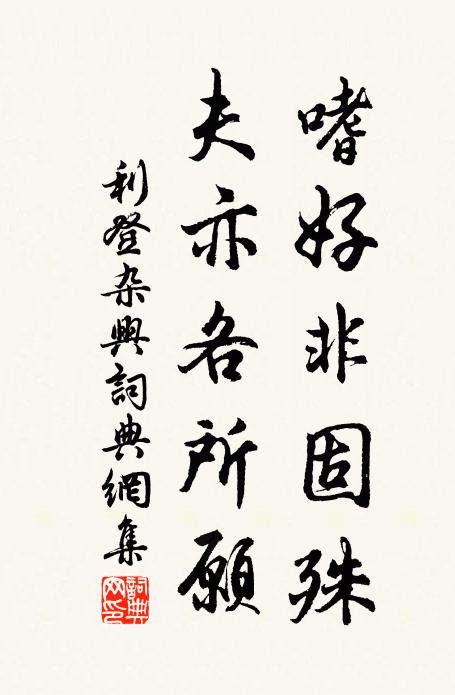 嗜好非固殊
夫亦各所願
利登杂興詞典網集
詞典網印